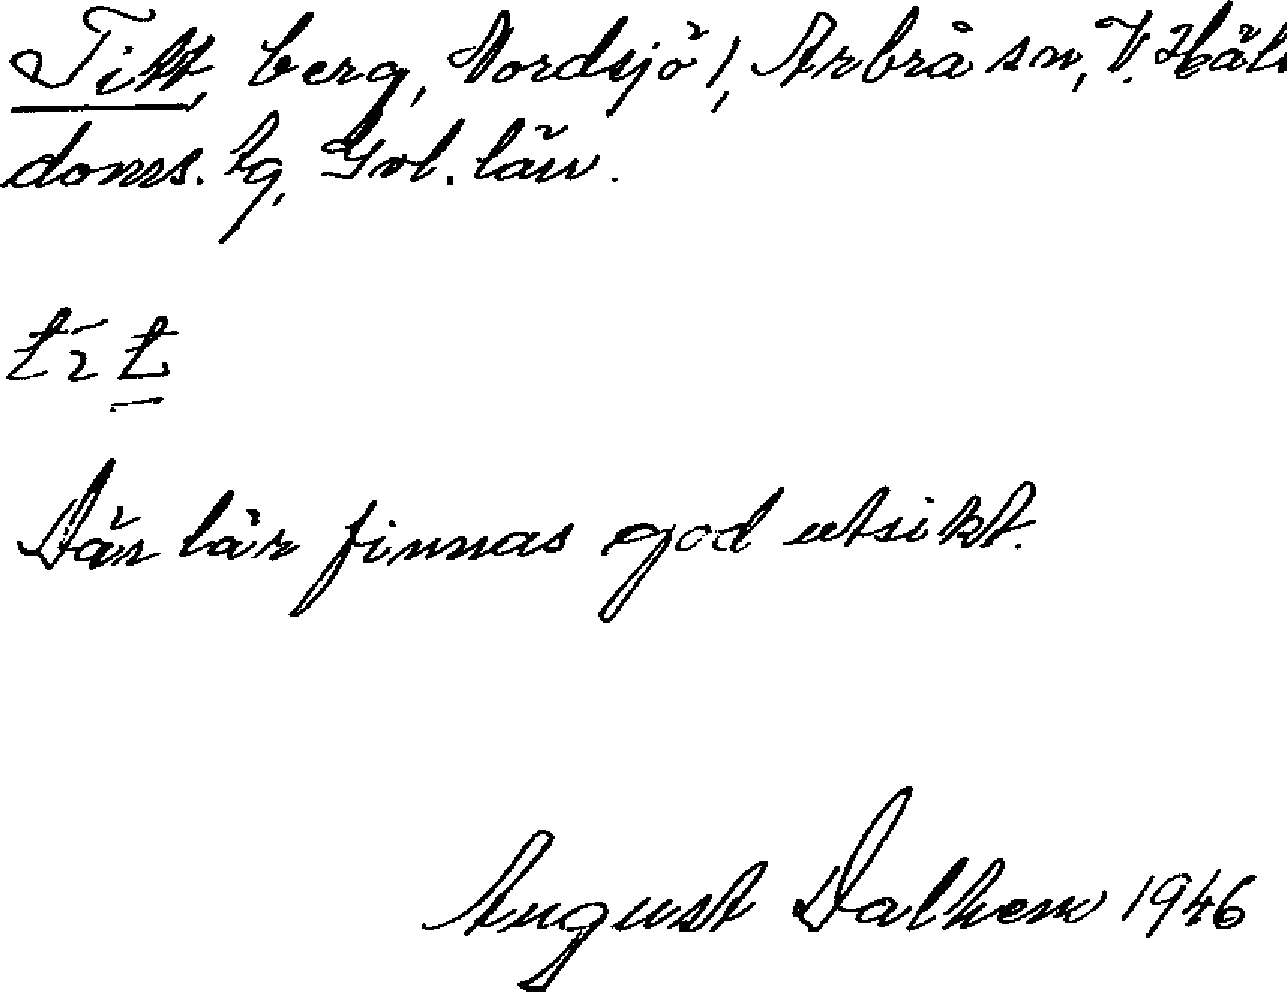 Titt, berg, Nordsjö 1, Arbrå sn, V. Häls
doms. lg, Gvl. län.
Där lär finnas god utsikt.
August Dalhem 1946